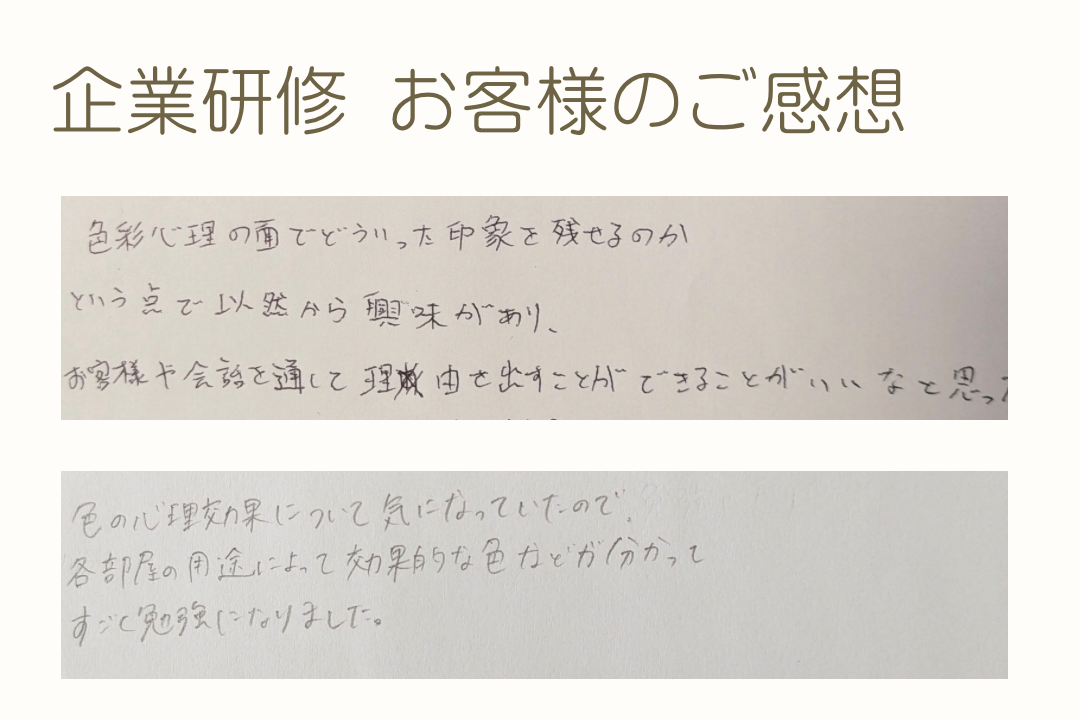 企業研修 お客様のご感想
色彩心理の面でどういった印象を残せるのか
という点で以然から興味があり、
お客様や会話を通して理由を出すことができることがいいなと思っ
色の心理効果について気になっていたので、
各部屋の用途によって効果的な色などが分かって
すごく勉強になりました。